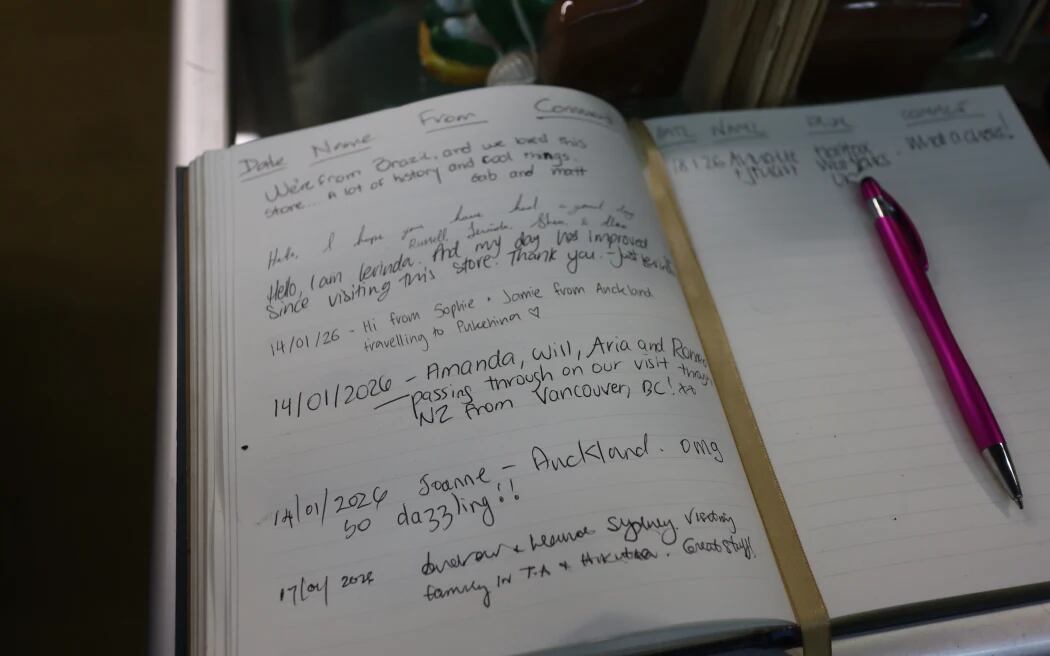 Date Name From Comment
We're from Brazil, and we loved this
store... A lot of history and cool things.
Gab and Matt
Hello, I hope you have had a good day
Russell, Lerinda,
Hello, I am Lerinda. And my day has improved
since visiting this store. Thank you. - Just Lerinda
14/01/26 - Hi from Sophie + Jamie from Auckland
travelling to Pukehina ♡
14/01/2026 - Amanda, Will, Aria and
passing through on our visit through
NZ from Vancouver, BC! xx
14/01/2026 Joanne - Auckland. omg
so dazzling!!
17/01/2026 Andrew + Sydney. Visiting
family in T.A + Hikutaia. Great Stuff!
DATE NAME COMMENT
18.1.26 What a classic!